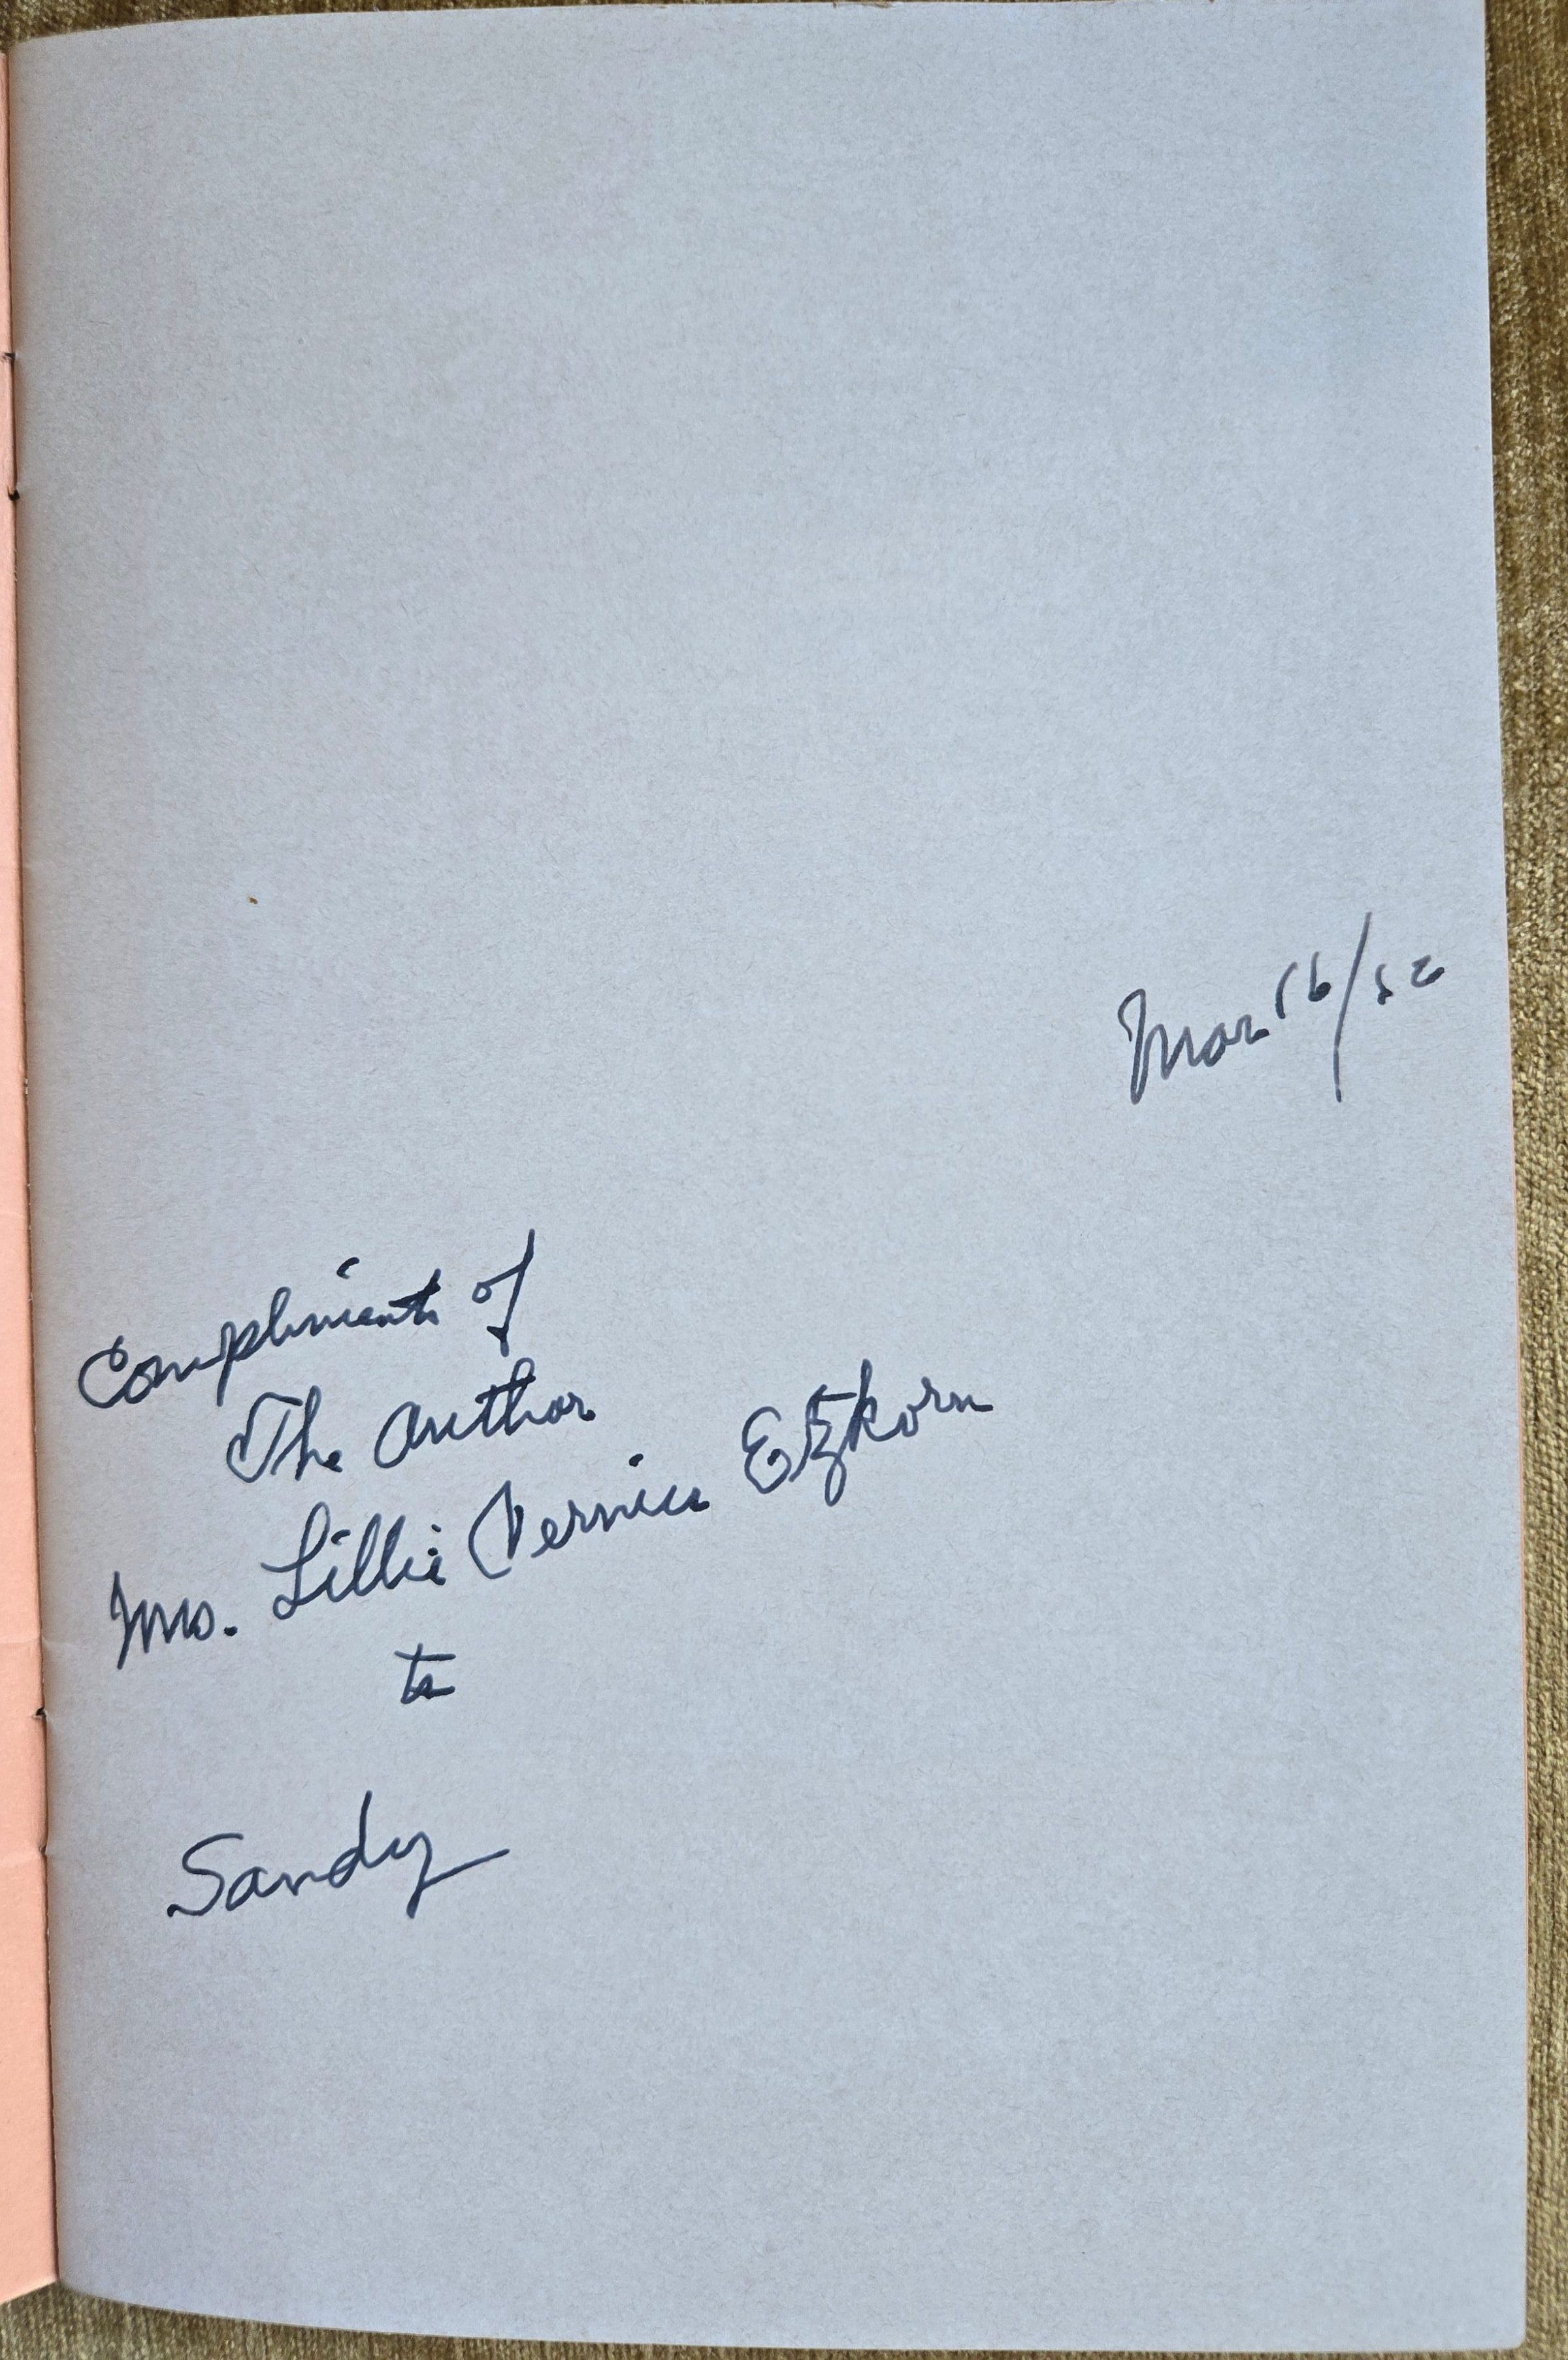 Mar 16/52
Compliments of
The Author
Mrs. Lillie Vernice Etzkorn
to
Sandy